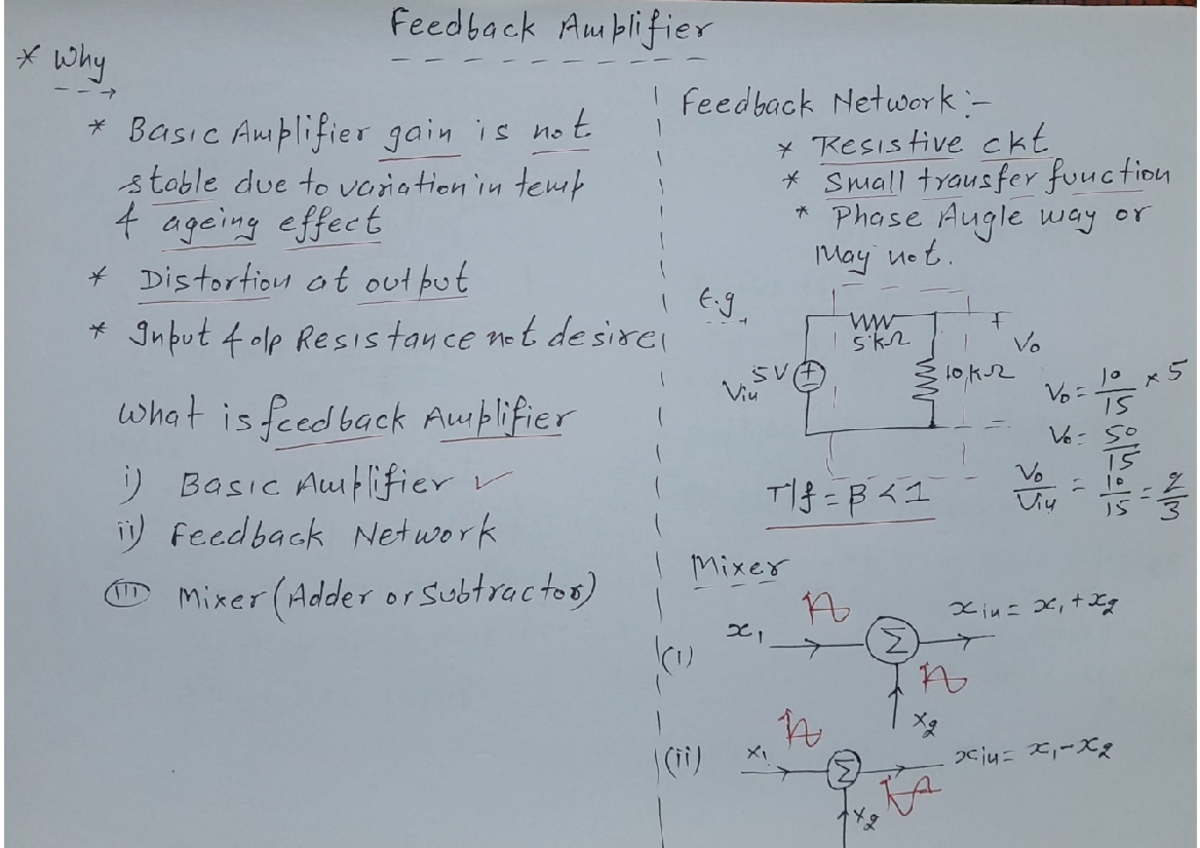 Feedback Amplifier
* Why
* Basic Amplifier gain is not
stable due to variation in temp
& ageing effect
* Distortion at output
* Input & o/p Resistance not desire
What is feedback Amplifier
i) Basic Amplifier ✓
ii) Feedback Network
(iii) Mixer (Adder or Subtractor)
Feedback Network :-
* Resistive ckt
* Small transfer function
* Phase Angle way or
May not.
E.g
5kΩ
+
Vo
5V
Vin
10kΩ
Vo = 10/15 × 5
Vo = 50/15
Vo/Vin = 10/15 = 2/3
T/f = β < 1
Mixer
(i)
x1
Σ
xin = x1 + x2
x2
(ii)
x1
Σ
xin = x1 - x2
x2